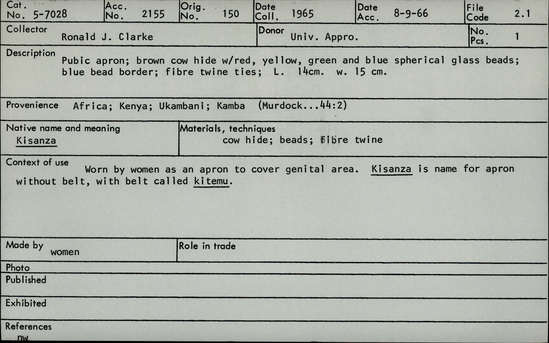 Cat. No. 5-7028 Acc. No. 2155 Orig. No. 150 Date Coll. 1965 Date Acc 8-9-66 File Code 2.1
Collector Ronald J. Clarke Donor Univ. Appro. No. Pcs. 1
Description Pubic apron; brown cow hide w/red, yellow, green and blue spherical glass beads;
blue bead border; fibre twine ties; L. 14cm. w. 15 cm.
Provenience Africa; Kenya; Ukambani; Kamba (Murdock...44:2)
Native name and meaning
Kisanza
Materials, techniques
cow hide; beads; fibre twine
Context of use Worn by women as an apron to cover genital area. Kisanza is name for apron
without belt, with belt called kitemu.
Made by women
Role in trade
Photo
Published
Exhibited
References
nw